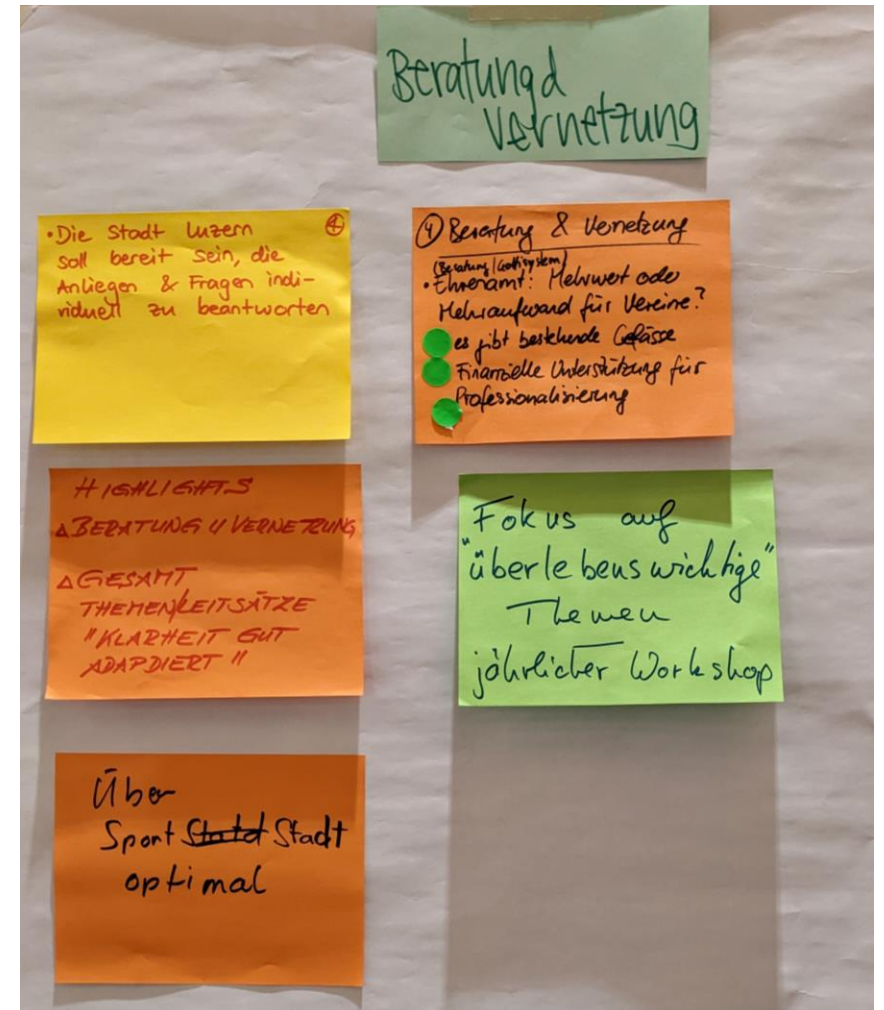 Beratung d
Vernetzung
• Die Stadt Luzern ④
soll bereit sein, die
Anliegen & Fragen indi-
viduell zu beantworten
④ Beratung & Vernetzung
(Beratung/Gottisystem)
• Ehrenamt: Mehrwert oder
Mehraufwand für Vereine?
es gibt bestehende Gefässe
Finanzielle Unterstützung für
Professionalisierung
HIGHLIGHTS
△ BERATUNG U VERNETZUNG
△ GESAMT
THEMEN/LEITSÄTZE
"KLARHEIT GUT
ADAPDIERT"
Fokus auf
"überlebenswichtige"
Themen
jährlicher Workshop
Über
Sport Stadt
optimal